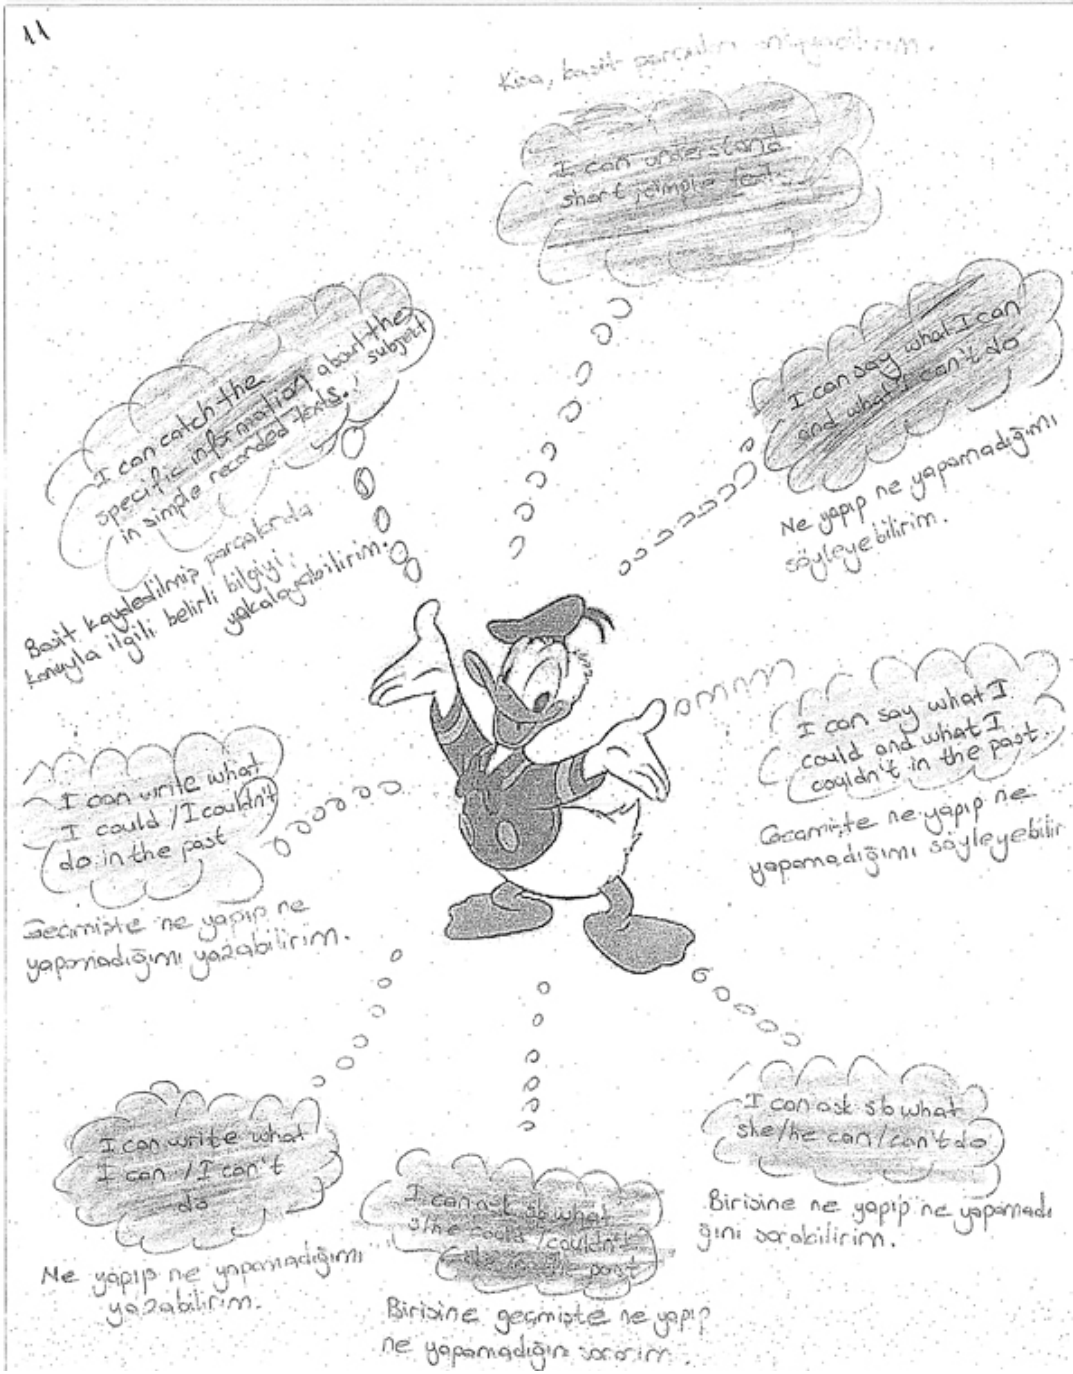 11
Kısa, basit parçaları anlayabilirim.
I can understand
short, simple text
I can catch the
specific information about the
in simple recorded texts. subject
Basit kaydedilmiş parçalarda
konuyla ilgili belirli bilgiyi
yakalayabilirim.
I can say what I can
and what I can't do
Ne yapıp ne yapamadığımı
söyleyebilirim.
I can say what I
could and what I
couldn't in the past.
Geçmişte ne yapıp ne
yapamadığımı söyleyebilir
I can write what
I could / I couldn't
do in the past
Geçmişte ne yapıp ne
yapamadığımı yazabilirim.
I can write what
I can / I can't
do
Ne yapıp ne yapamadığımı
yazabilirim.
I can ask sb what
s/he could / couldn't
past
Birisine geçmişte ne yapıp
ne yapamadığını sorarım.
I can ask sb what
she/he can/can't do
Birisine ne yapıp ne yapamadı
ğını sorabilirim.